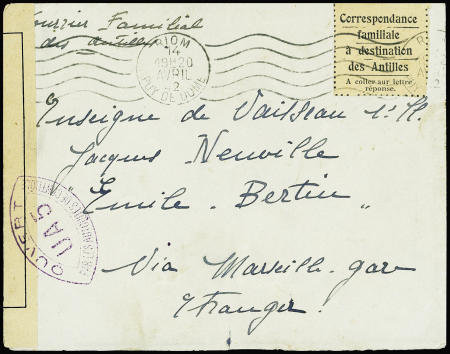 Courrier Familial
des Antilles
RIOM
14
19H20
AVRIL
2
PUY DE DOME
Correspondance
familiale
à destination
des Antilles
A coller sur lettre
réponse.
Enseigne de Vaisseau
Jacques Neuville
"Emile-Bertin"
OUVERT
UA5
Via Marseille-gare
étranger